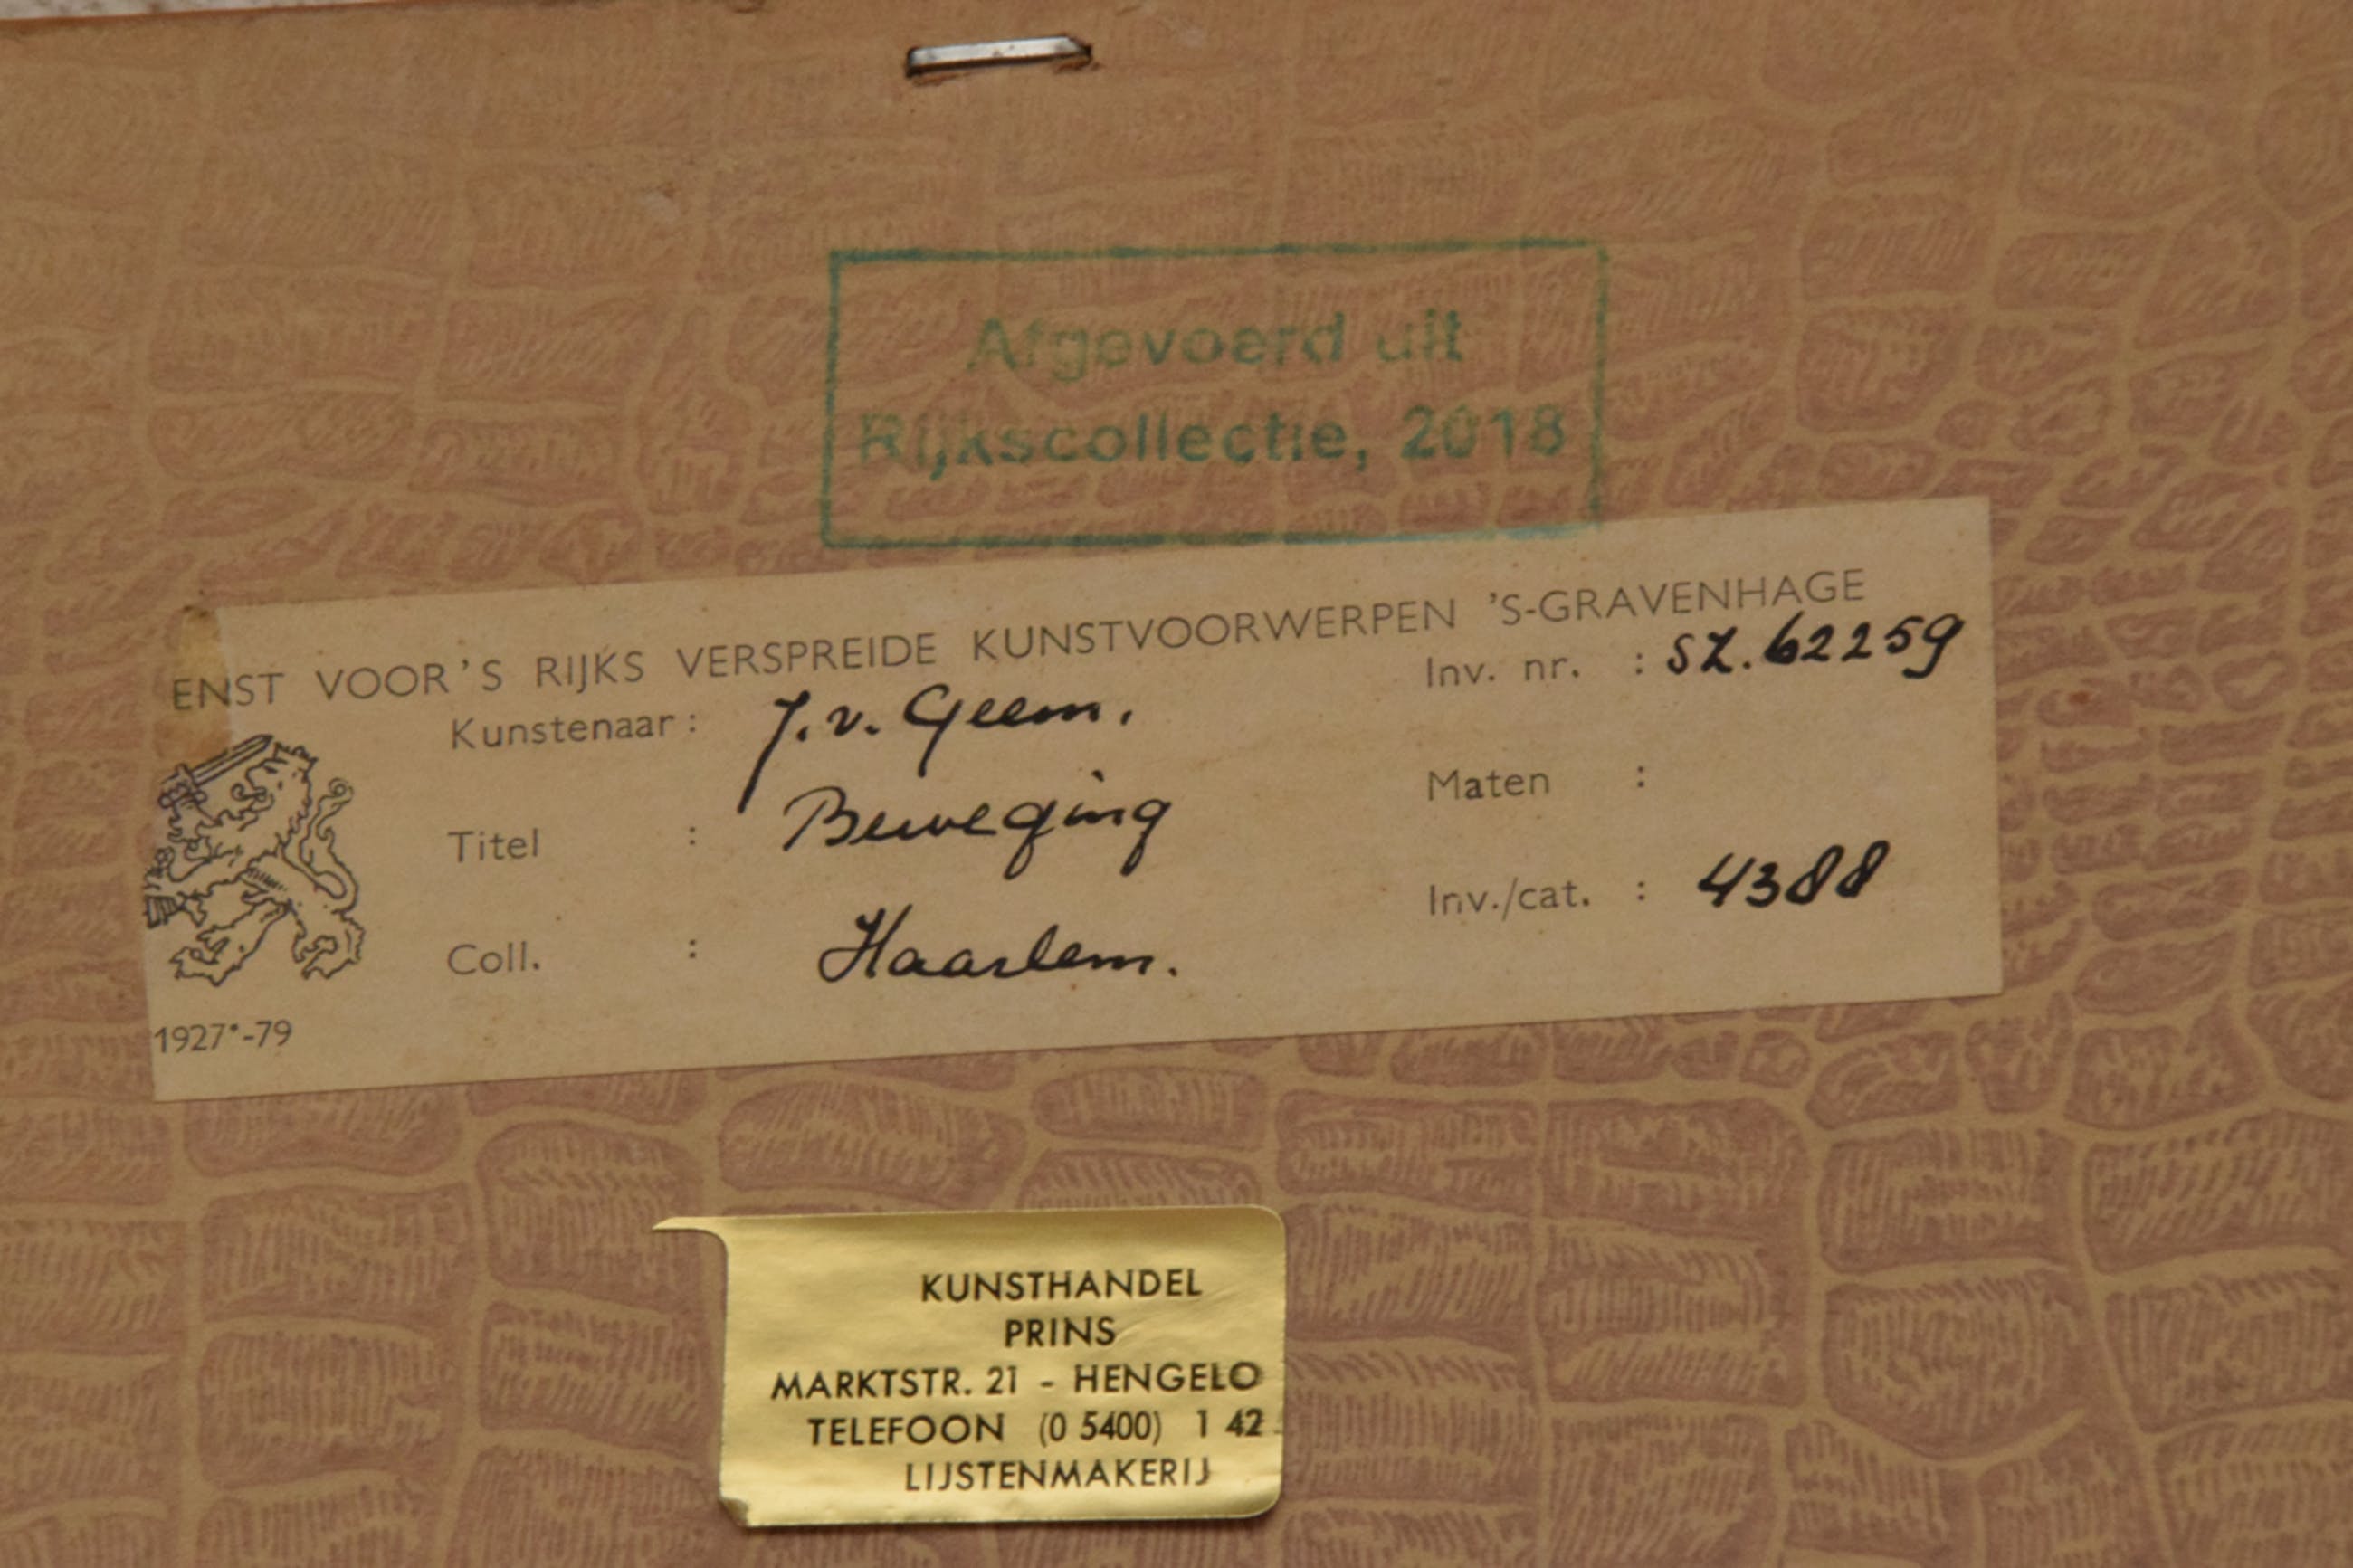 Afgevoerd uit
Rijkscollectie, 2018
ENST VOOR'S RIJKS VERSPREIDE KUNSTVOORWERPEN 'S-GRAVENHAGE
Kunstenaar: J. v. Geem. Inv. nr. : SZ.62259
Titel : Beweging Maten :
Coll. : Haarlem. Inv./cat. : 4388
1927*-79
KUNSTHANDEL
PRINS
MARKTSTR. 21 - HENGELO
TELEFOON (0 5400) 1 42
LIJSTENMAKERIJ